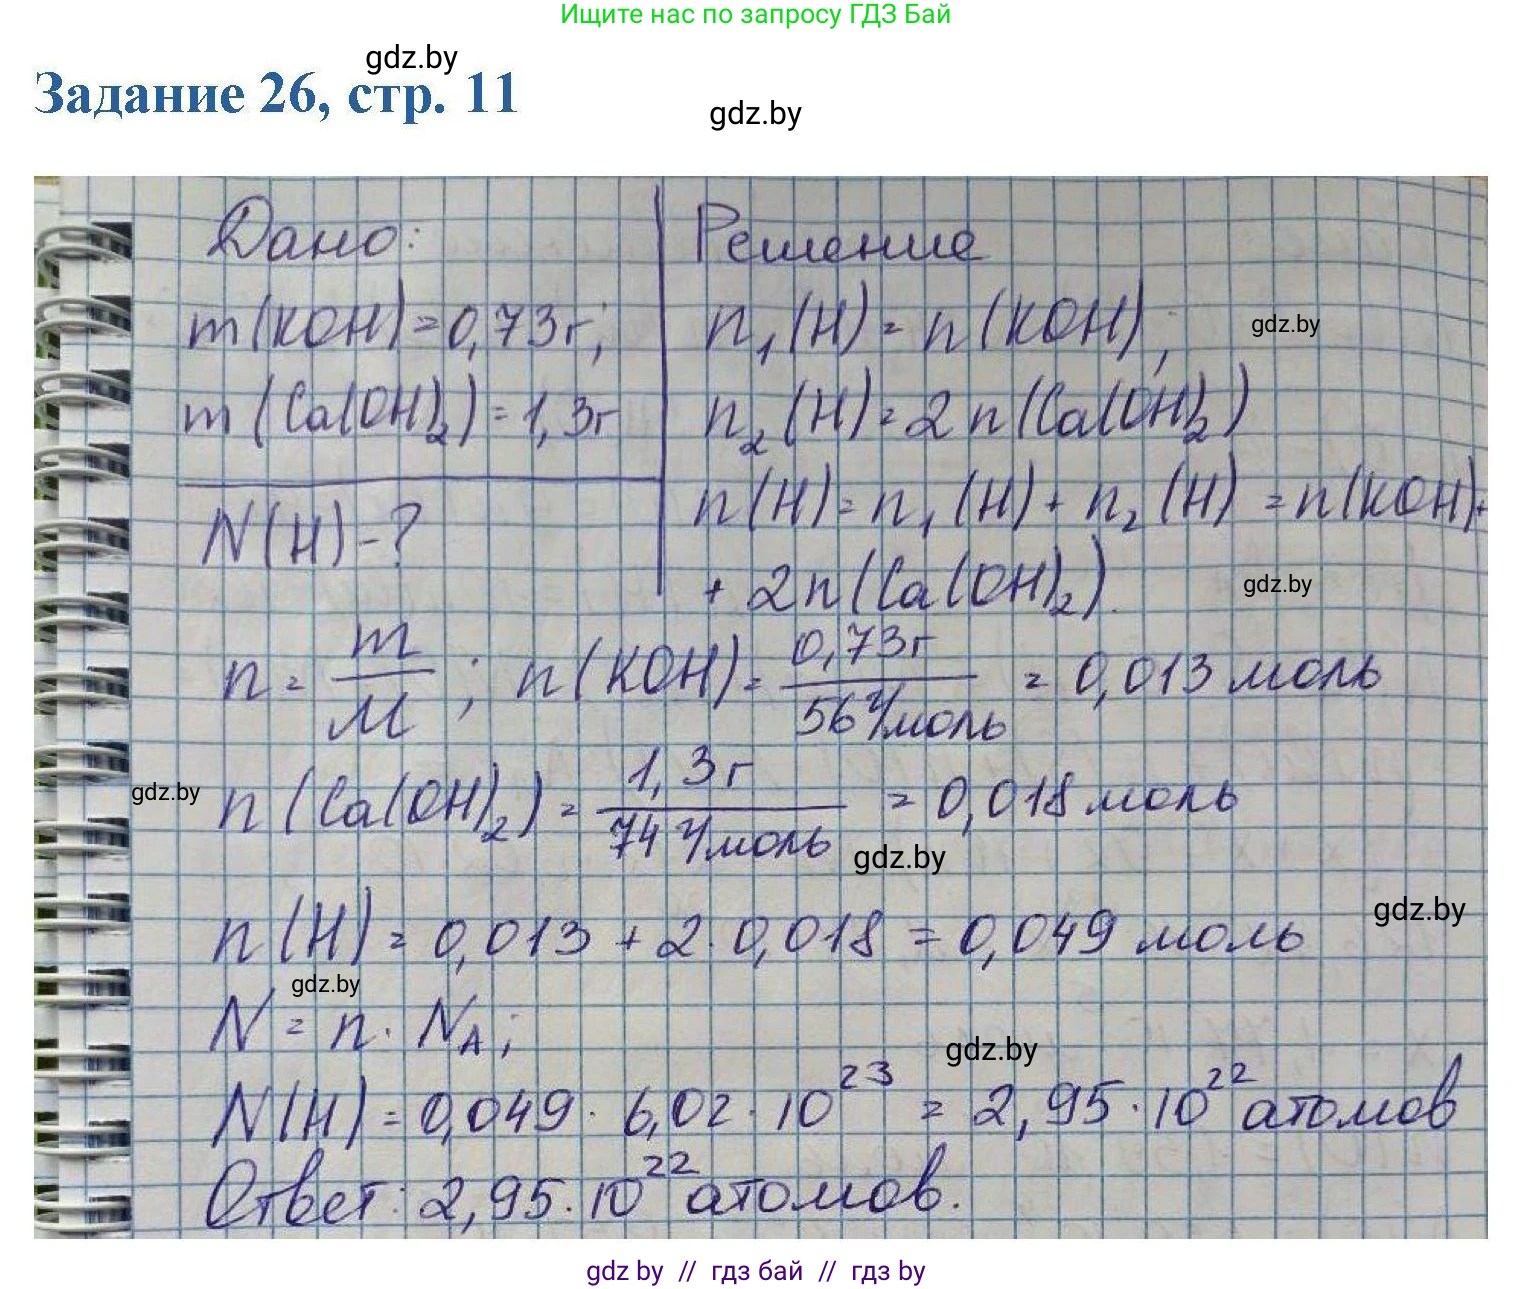 Ищите нас по запросу ГДЗ Бай
gdz.by
Задание 26, стр. 11
gdz.by
Дано:
m(KOH)=0,73г;
m(Ca(OH)2)=1,3г
N(H)-?
Решение
n1(H)=n(KOH);
gdz.by
n2(H)=2n(Ca(OH)2)
n(H)=n1(H)+n2(H)=n(KOH)+
+2n(Ca(OH)2).
gdz.by
n=m/M; n(KOH)=0,73г/56г/моль=0,013моль
gdz.by
n(Ca(OH)2)=1,3г/74г/моль=0,018моль
gdz.by
gdz.by
n(H)=0,013+2·0,018=0,049моль
gdz.by
N=n·NA;
gdz.by
N(H)=0,049·6,02·10^23=2,95·10^22атомов
Ответ: 2,95·10^22атомов.
gdz by // гдз бай // гдз by